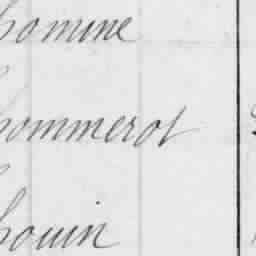 homine
hommerot
houin